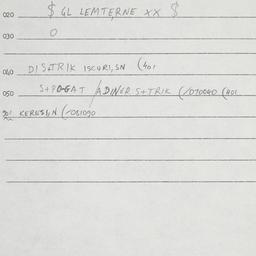 020 $ GL LEMTERNE XX $
030 O
040 DISTRIK ISCURI,SN (401
050 S+POGAT /ADINER S+TRIK (/070040 (401
901 KERESUN (/081090